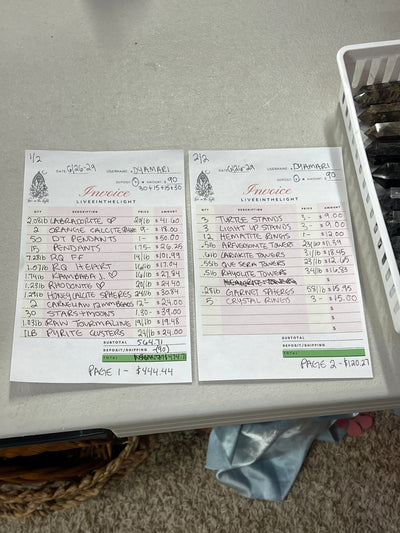 1/2
DATE 6/26-29 USERNAME DYAMARI
DEPOSIT AMOUNT $90
30+15+15+30
Invoice
LIVEEINTHELIGHT
QTY DESCRIPTION PRICE AMOUNT
2.08lb LABRADORITE ♡ 20/lb $ 41.60
2 ORANGE CALCITE 9- $ 18.00
50 DT PENDANTS 1- $ 50.00
15 PENDANTS 1.75- $ 26.25
7.28lb RQ FF 14/lb $ 101.99
1.07lb RQ HEART 16/lb $ 17.04
1.74lb KAMBABA J. ♡ 16/lb $ 27.84
1.23lb RHODONITE ♡ 20/lb $ 24.40
1.29lb HONEY CALCITE SPHERES 24/lb $ 30.84
2 CARNELIAN TOWERS 12- $ 24.00
30 STARS+MOONS 1.30- $ 39.00
1.03lb RAW TOURMALINE 19/lb $ 19.48
1LB PYRITE CLUSTERS 24/lb $ 24.00
SUBTOTAL
DEPOSIT/SHIPPING (90)
TOTAL
PAGE 1 - $444.44
2/2
DATE 6/26-29 USERNAME DYAMARI
DEPOSIT AMOUNT $90
Invoice
LIVEEINTHELIGHT
QTY DESCRIPTION PRICE AMOUNT
3 TURTLE STANDS 3- $ 9.00
3 LIGHT UP STANDS 3- $ 9.00
12 HEMATITE RINGS 1- $ 12.00
.51lb ARFVEDSONITE TOWERS
.61lb GARNITE TOWERS 31/lb $ 18.45
.55lb QUE SERA TOWERS 23/lb $ 12.65
.51lb RHYOLITE TOWERS 34/lb $ 16.83
.28lb GARNET SPHERES $ 15.95
5 CRYSTAL RINGS 3- $ 15.00
$
$
$
SUBTOTAL
DEPOSIT/SHIPPING
TOTAL
PAGE 2 - $120.27